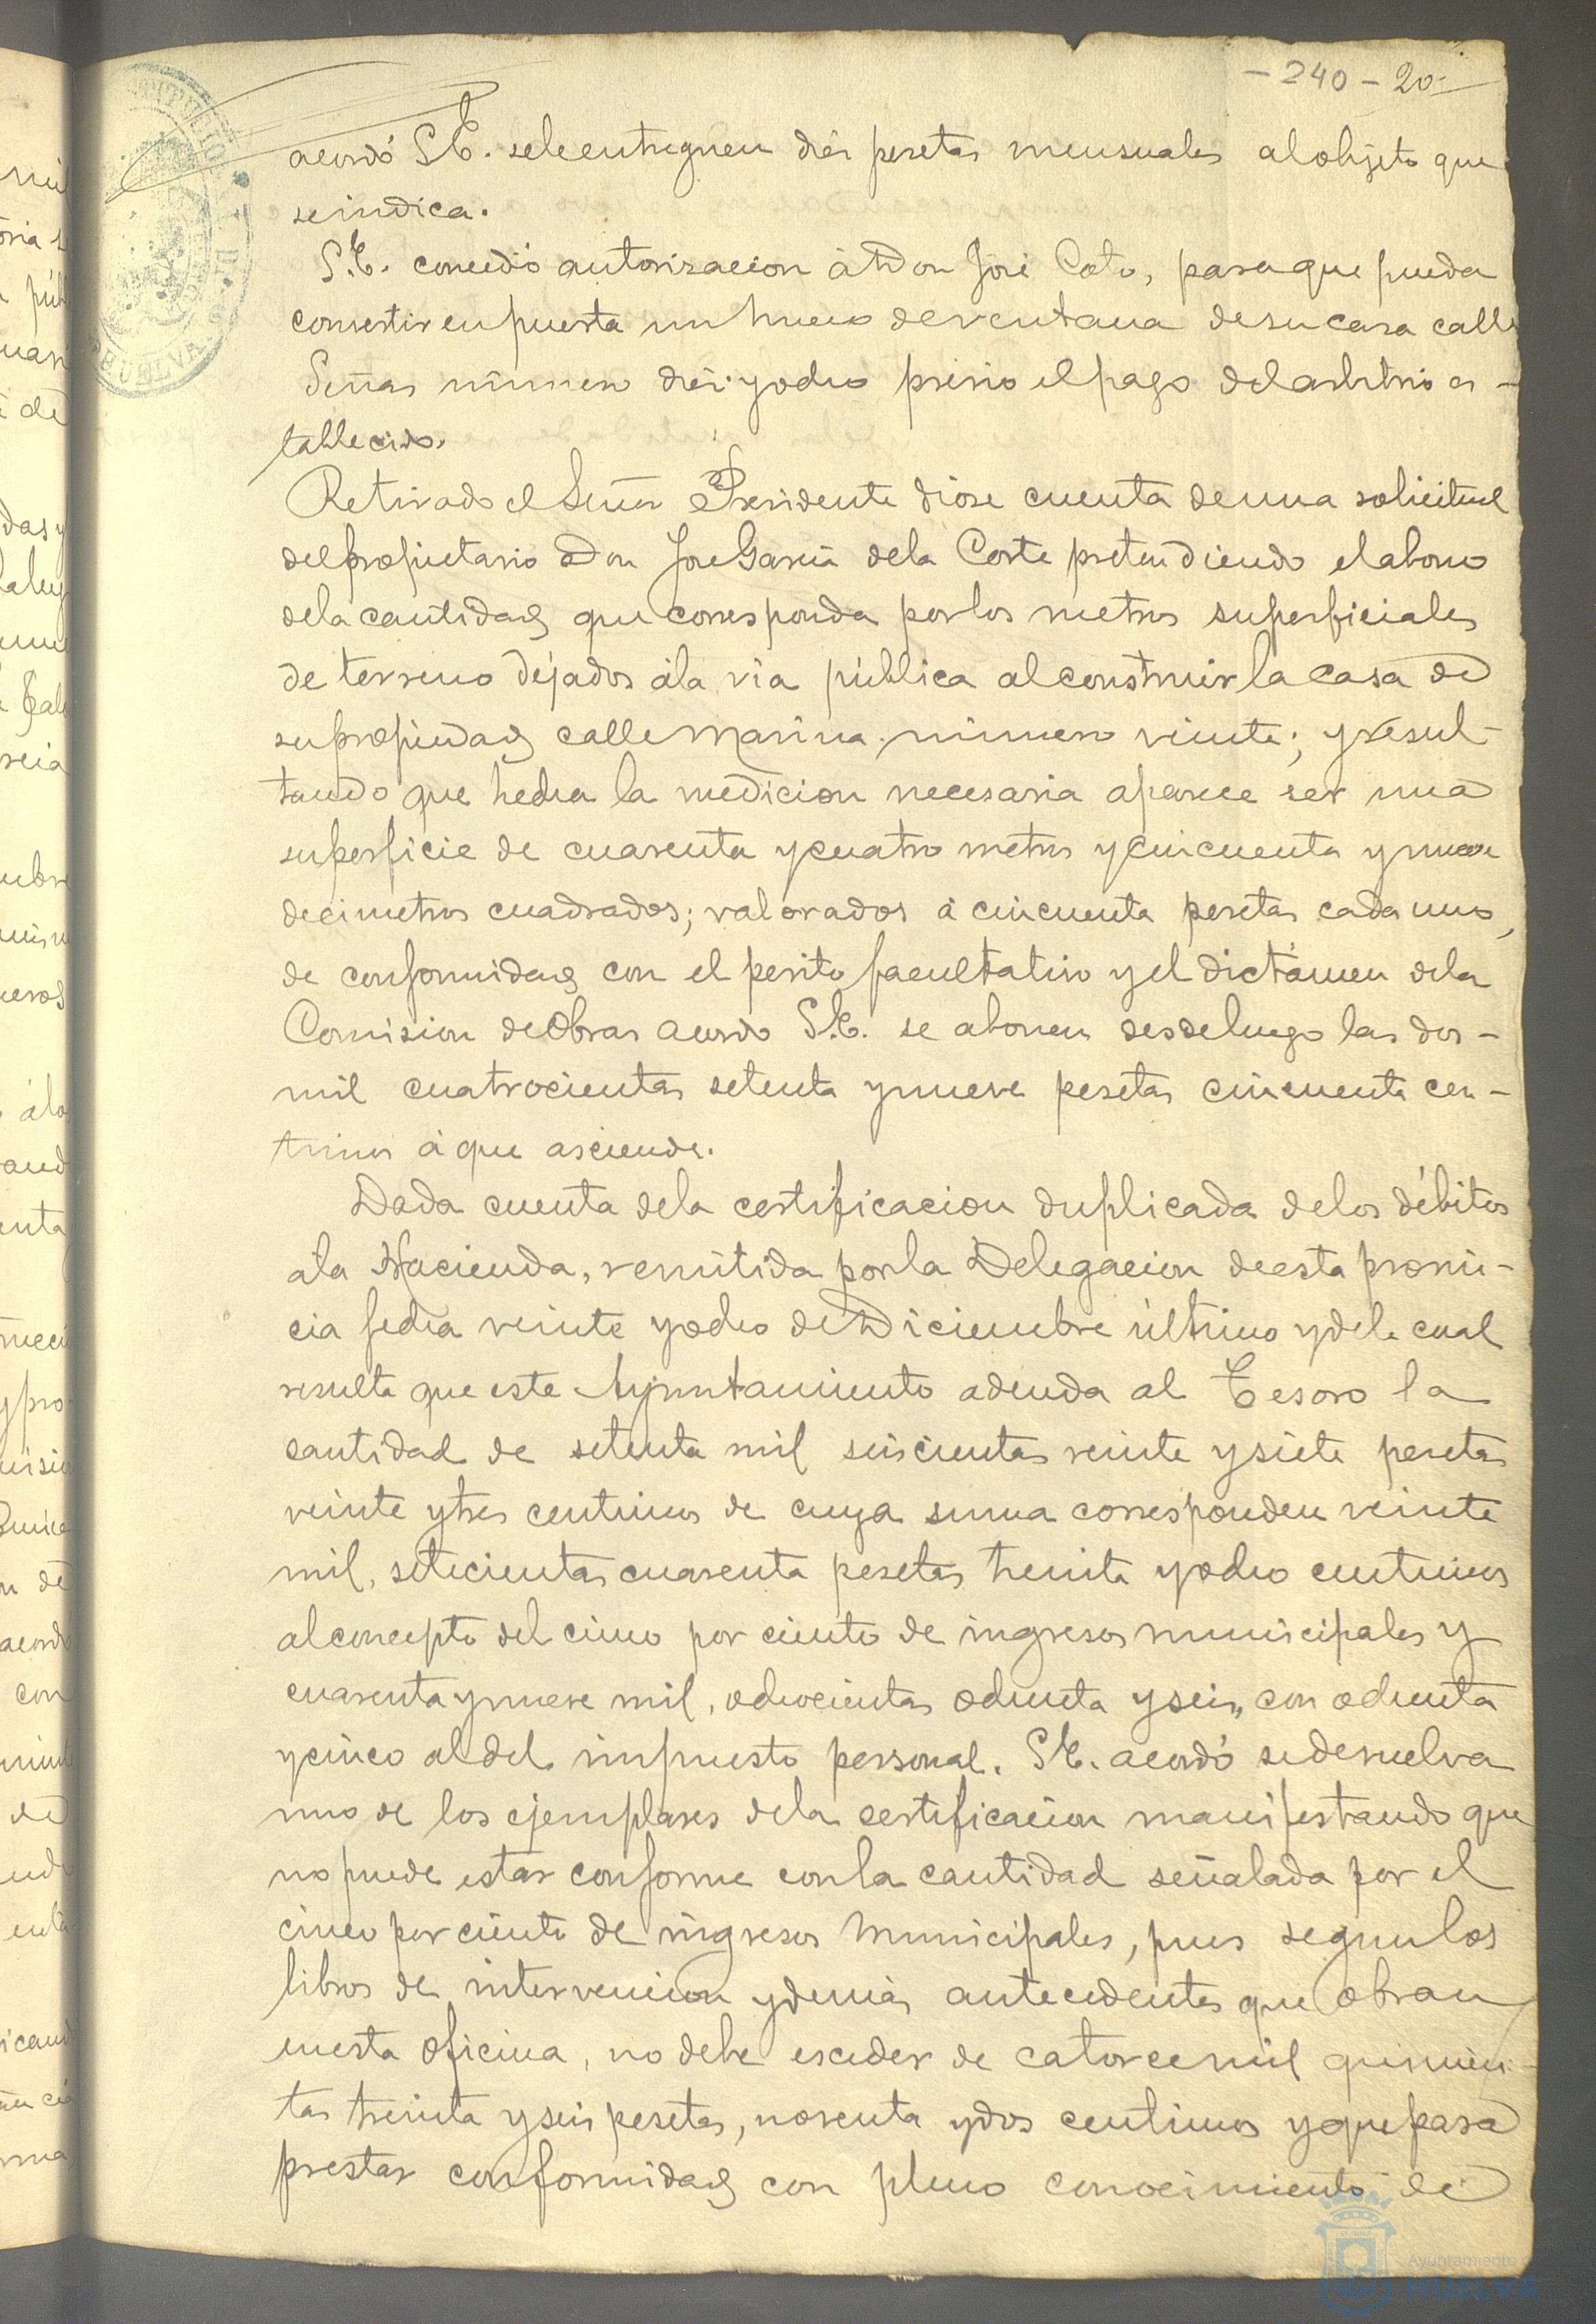 - 240 - 20 -
acordó S.E. se le entreguen diéz pesetas mensuales al objeto que
se indica.
S.E. concedió autorizacion á Don José Coto, para que pueda
convertir en puerta un hueco de ventana de su casa calle
Señas número diéz y ocho prévio el pago del arbitrio es-
tablecido.
Retirado el Señor Presidente dióse cuenta de una solicitud
del propietario Don José Garcia de la Corte pretendiendo el abono
de la cantidad que corresponda por los metros superficiales
de terreno dejados á la via pública al construir la casa de
su propiedad calle Marina número veinte; y resul-
tando que hecha la medicion necesaria aparece ser una
superficie de cuarenta y cuatro metros y cincuenta y nueve
decimetros cuadrados; valorados á cincuenta pesetas cada uno,
de conformidad con el perito facultativo y el dictámen de la
Comision de Obras acordó S.E. se abonen desde luego las dos-
mil cuatrocientas setenta y nueve pesetas cincuenta cen-
timos á que asciende.
Dada cuenta de la certificacion duplicada de los débitos
á la Hacienda, remitida por la Delegacion de esta provin-
cia fecha veinte y ocho de Diciembre último y de la cual
resulta que este Ayuntamiento adeuda al Tesoro la
cantidad de setenta mil seiscientas veinte y siete pesetas
veinte y tres centimos de cuya suma corresponden veinte
mil, setecientas cuarenta pesetas treinta y ocho centimos
al concepto del cinco por ciento de ingresos municipales y
cuarenta y nueve mil, ochocientas ochenta y seis, con ochenta
y cinco al del impuesto personal. S.E. acordó se devuelva
uno de los ejemplares de la certificacion manifestando que
no puede estar conforme con la cantidad señalada por el
cinco por ciento de ingresos municipales, pues segun los
libros de intervencion y demás antecedentes que obran
en esta oficina, no debe esceder de catorce mil quinien-
tas treinta y seis pesetas, noventa y dos centimos y que para
prestar conformidad con pleno conocimiento de
HUELVA
Ayuntamiento de
HUELVA